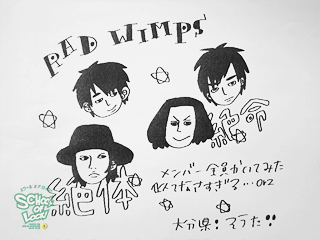 RAD WIMPS
絶体
絶命
メンバー全員かいてみた
似てなさすぎる…orz
大分県:そうた!!
SCHOOL OF LOCK!